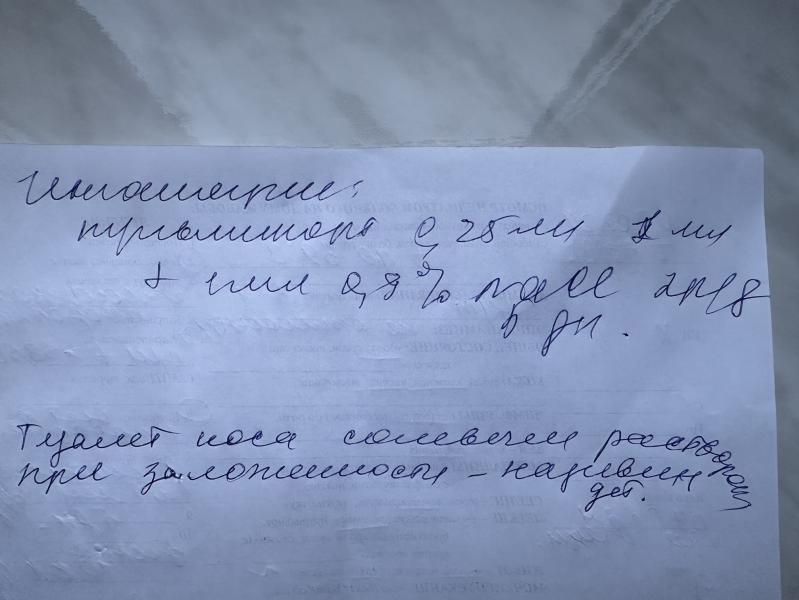 Ингаляции:
пульмикорт 0,25 мл 1 мл
+ 1 мл 0,9% NaCl 2 р/д
5 дн.
Туалет носа солевыми раствором
при заложенности - називин
дет.